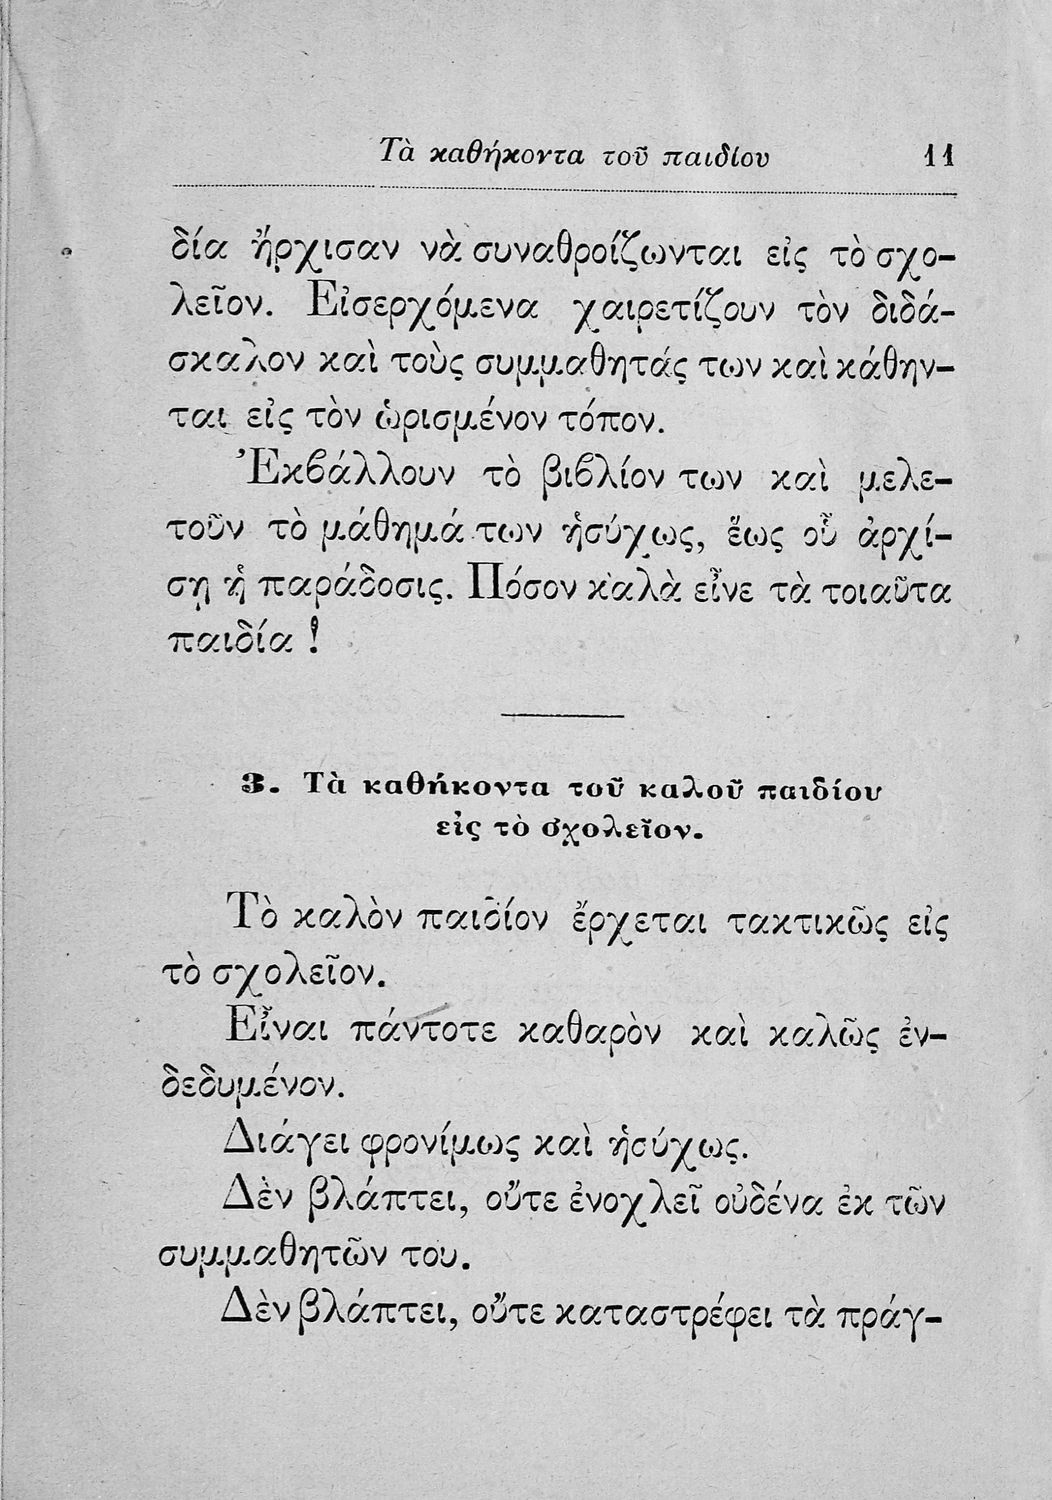 Τὰ καθήκοντα τοῦ παιδίου 11
δία ἤρχισαν νὰ συναθροίζωνται εἰς τὸ σχο-
λεῖον. Εἰσερχόμενα χαιρετίζουν τὸν διδά-
σκαλον καὶ τοὺς συμμαθητάς των καὶ κάθην-
ται εἰς τὸν ὡρισμένον τόπον.
Ἐκβάλλουν τὸ βιβλίον των καὶ μελε-
τοῦν τὸ μάθημά των ἡσύχως, ἕως οὗ ἀρχί-
σῃ ἡ παράδοσις. Πόσον καλὰ εἶνε τὰ τοιαῦτα
παιδία !
3. Τὰ καθήκοντα τοῦ καλοῦ παιδίου
εἰς τὸ σχολεῖον.
Τὸ καλὸν παιδίον ἔρχεται τακτικῶς εἰς
τὸ σχολεῖον.
Εἶναι πάντοτε καθαρὸν καὶ καλῶς ἐν-
δεδυμένον.
Διάγει φρονίμως καὶ ἡσύχως.
Δὲν βλάπτει, οὔτε ἐνοχλεῖ οὐδένα ἐκ τῶν
συμμαθητῶν του.
Δὲν βλάπτει, οὔτε καταστρέφει τὰ πράγ-